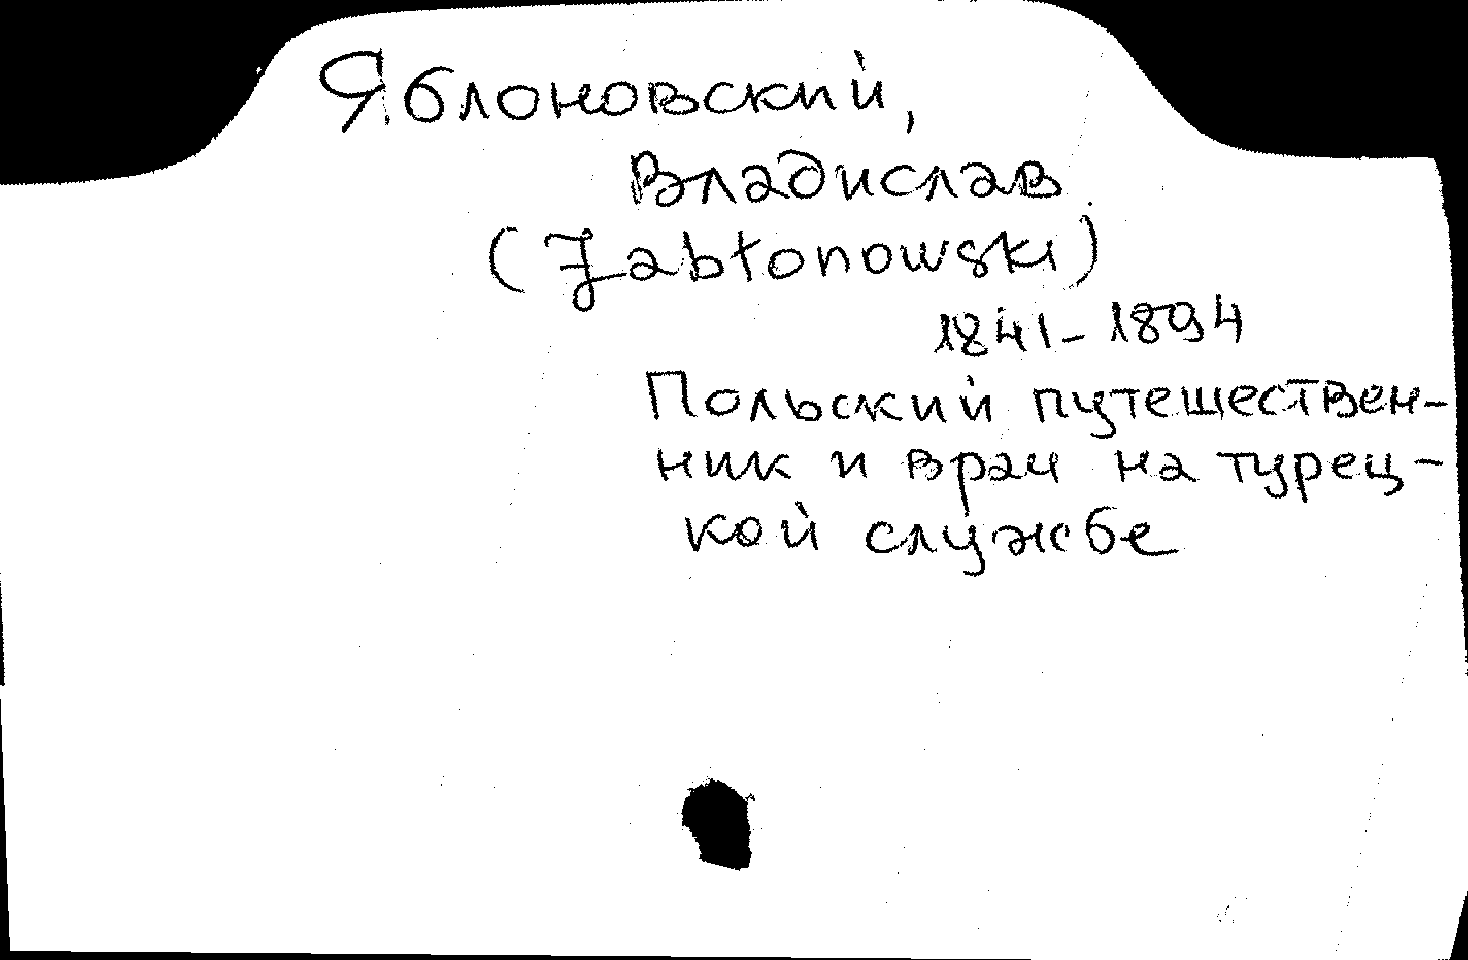 Яблоновский,
Владислав
(Jabłonowski)
1841-1894
Польский путешествен-
ник и врач на турец-
кой службе